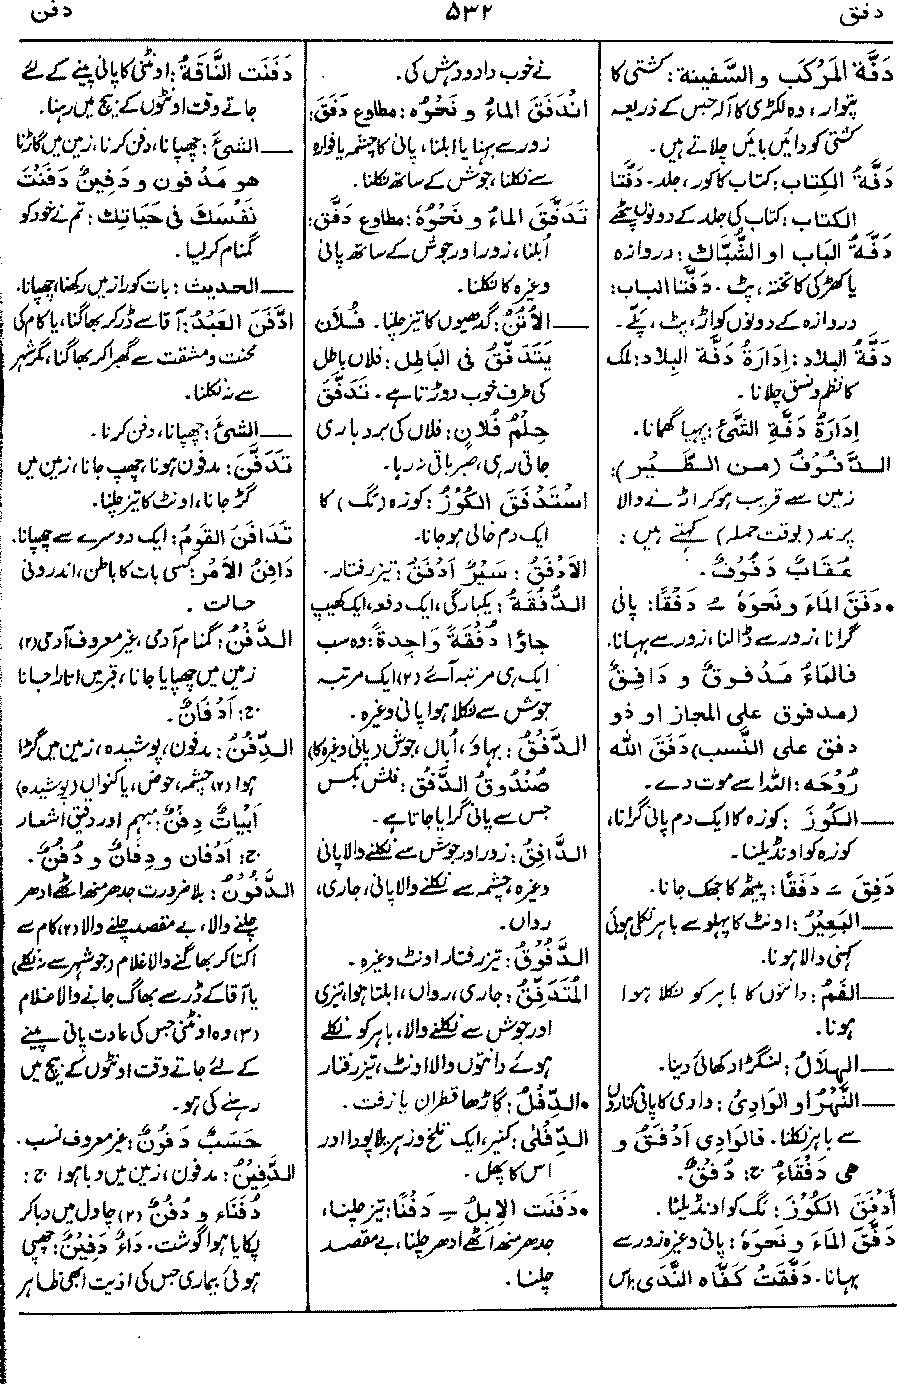 دفق
۵۳۲
دفن
دَفَّةُ المَرْكَب والسَّفينة: کشتی کا
پتوار، وہ لکڑی کا آلہ جس کے ذریعہ
کشتی کو دائیں بائیں چلاتے ہیں۔
دَفَّةُ الكِتاب: کتاب کا کور، جلد۔ دَفَّتا
الكتاب: کتاب کی جلد کے دونوں پٹھے
دَفَّةُ الباب او الشُّبّاك: دروازہ
یا کھڑکی کا تختہ، پٹ۔ دَفَّتا الباب:
دروازہ کے دونوں کواڑ، پٹ، پلّے۔
دَفَّةُ البلاد: اِدَارَةُ دَفَّةِ البِلاد: ملک
کا نظم ونسق چلانا۔
اِدَارَةُ دَفَّةِ الشَّیْ: پہیا گھمانا۔
الدَّفُوفُ (من الطَّيْر):
زمین سے قریب ہو کر اڑنے والا
پرند (بوقت حملہ) کہتے ہیں:
عُقَابٌ دَفُوفٌ۔
• دَفَقَ المَاءَ ونَحوَهُ ـُ دَفْقًا: پانی
گرانا، زور سے ڈالنا، زور سے بہانا۔
فالمَاءُ مَدْفوقٌ و دَافِقٌ
(مدفوق على المجاز او ذو
دفق على النَّسب) دَفَقَ الله
رُوْحَه: اللہ اسے موت دے۔
ــــ الكُوزَ: کوزہ کا ایک دم پانی گرانا،
کوزہ کو اونڈیلنا۔
دَفِقَ ـَ دَفَقًا: پیٹھ کا جھک جانا۔
ــــ البَعِيْرُ: اونٹ کا پہلو سے باہر نکلی ہوئی
کہنی والا ہونا۔
ــــ الفَمُ: دانتوں کا باہر کو نکلا ہوا
ہونا۔
ــــ الهِلَالُ: لنگڑا دکھائی دینا۔
ــــ النَّهْرُ او الوَادِیُ: وادی کا پانی کناروں
سے باہر نکلنا۔ فالوَادِی اَدْفَقُ و
هی دَفْقَاءُ ج: دُفْقٌ۔
أَدْفَقَ الكُوْزَ: نگ کو اونڈیلنا۔
دَفَّقَ المَاءَ و نَحْوَهُ: پانی وغیرہ زور سے
بہانا۔ دَفَّقَتْ كَفَّاهُ النَّدَى: اس
نے خوب داد و دہش کی۔
اِنْدَفَقَ المَاءُ و نَحْوُهُ: مطاوع دَفَقَ:
زور سے بہنا یا ابلنا، پانی کا چشمہ یا فوارہ
سے نکلنا، جوش کے ساتھ نکلنا۔
تَدَفَّقَ المَاءُ و نَحْوُهُ: مطاوع دَفَّقَ:
اُبلنا، زور اور جوش کے ساتھ پانی
وغیرہ کا نکلنا۔
ــــ الأُتُنُ: گدھیوں کا تیز چلنا۔ فُلَان
يَتَدَفَّقُ فِى البَاطِل: فلاں باطل
کی طرف خوب دوڑتا ہے۔ تَدَفَّقَ
حِلْمُ فُلَانٍ: فلاں کی بردباری
جاتی رہی، صبر باقی نہ رہا۔
اِسْتَدْفَقَ الكُوْزُ: کوزہ (نگ) کا
ایک دم خالی ہو جانا۔
الأَدْفَقُ: سَيْرٌ اَدْفَقُ: تیز رفتار۔
الدُّفْقَةُ: یکبارگی، ایک دفعہ، ایک کھیپ
جاؤا دُفْقَةً وَاحِدةً: وہ سب
ایک ہی مرتبہ آئے (۲) ایک مرتبہ
جوش سے نکلا ہوا پانی وغیرہ۔
الدَّفْقُ: بہاؤ، اُبال، جوش (پانی وغیرہ کا)
صُنْدُوقُ الدَّفْقِ: فلش بکس
جس سے پانی گرایا جاتا ہے۔
الدَّافِقُ: زور اور جوش سے نکلنے والا پانی
وغیرہ، چشمہ سے نکلنے والا پانی، جاری،
رواں۔
الدَّفُوقُ: تیز رفتار اونٹ وغیرہ۔
المُتَدَفِّقُ: جاری، رواں، ابلتا ہوا، تیزی
اور جوش سے نکلنے والا، باہر کو نکلے
ہوئے دانتوں والا اونٹ، تیز رفتار
• الدِّفْلُ: گاڑھا قطران یا زفت۔
الدِّفْلٰی: کنیر، ایک تلخ و زہریلا پودا اور
اس کا پھل۔
• دَفَنَت الإِبِلُ ـِ دَفْنًا: تیز چلنا،
جدھر منھ اٹھے ادھر چلنا، بے مقصد
چلنا۔
دَفَنَت النَّاقَةُ: اونٹنی کا پانی پینے کے لئے
جاتے وقت اونٹوں کے بیچ میں رہنا۔
ــــ الشیْءَ: چھپانا، دفن کرنا، زمین میں گاڑنا
هو مَدْفون و دَفِينٌ دَفَنْتَ
نَفْسَكَ فِى حَيَاتِك: تم نے خود کو
گمنام کر لیا۔
ــــ الحديث: بات کو راز میں رکھنا، چھپانا۔
ادَّفَنَ العَبْدُ: آقا سے ڈر کر بھاگنا، یا کام کی
محنت و مشقت سے گھبرا کر بھاگنا، مگر شہر
سے نہ نکلنا۔
ــــ الشیْءَ: چھپانا، دفن کرنا۔
تَدَفَّنَ: مدفون ہونا، چھپ جانا، زمین میں
گڑ جانا، اونٹ کا تیز چلنا۔
تَدَافَنَ القَومُ: ایک دوسرے سے چھپانا۔
دَافِنُ الأَمْرِ: کسی بات کا باطن، اندرونی
حالت۔
الدَّفْنُ: گمنام آدمی، غیر معروف آدمی (۲)
زمین میں چھپایا جانا، قبر میں اتارا جانا
ج: اَدْفَانٌ۔
الدِّفْنُ: مدفون، پوشیدہ، زمین میں گڑا
ہوا (۲) چشمہ، حوض، یا کنواں (پوشیدہ)
أَبْيَاتٌ دِفْنٌ: مبہم اور دقیق اشعار
ج: اَدْفان و دِفانٌ و دُفُنٌ۔
الدَّفُونُ: بلا ضرورت جدھر منھ اٹھے ادھر
چلنے والا، بے مقصد چلنے والا (۲) کام سے
اکتا کر بھاگنے والا غلام (جو شہر سے نہ نکلے)
یا آقا کے ڈر سے بھاگ جانے والا غلام
(۳) وہ اونٹنی جس کی عادت پانی پینے
کے لئے جاتے وقت اونٹوں کے بیچ میں
رہنے کی ہو۔
حَسَبٌ دَفُونٌ: غیر معروف نسب۔
الدَّفِينُ: مدفون، زمین میں دبا ہوا ج:
دُفَنَاء و دُفُنٌ (۲) چاول میں دبا کر
پکایا ہوا گوشت۔ دَاءٌ دَفِينٌ: چھپی
ہوئی بیماری جس کی اذیت ابھی ظاہر